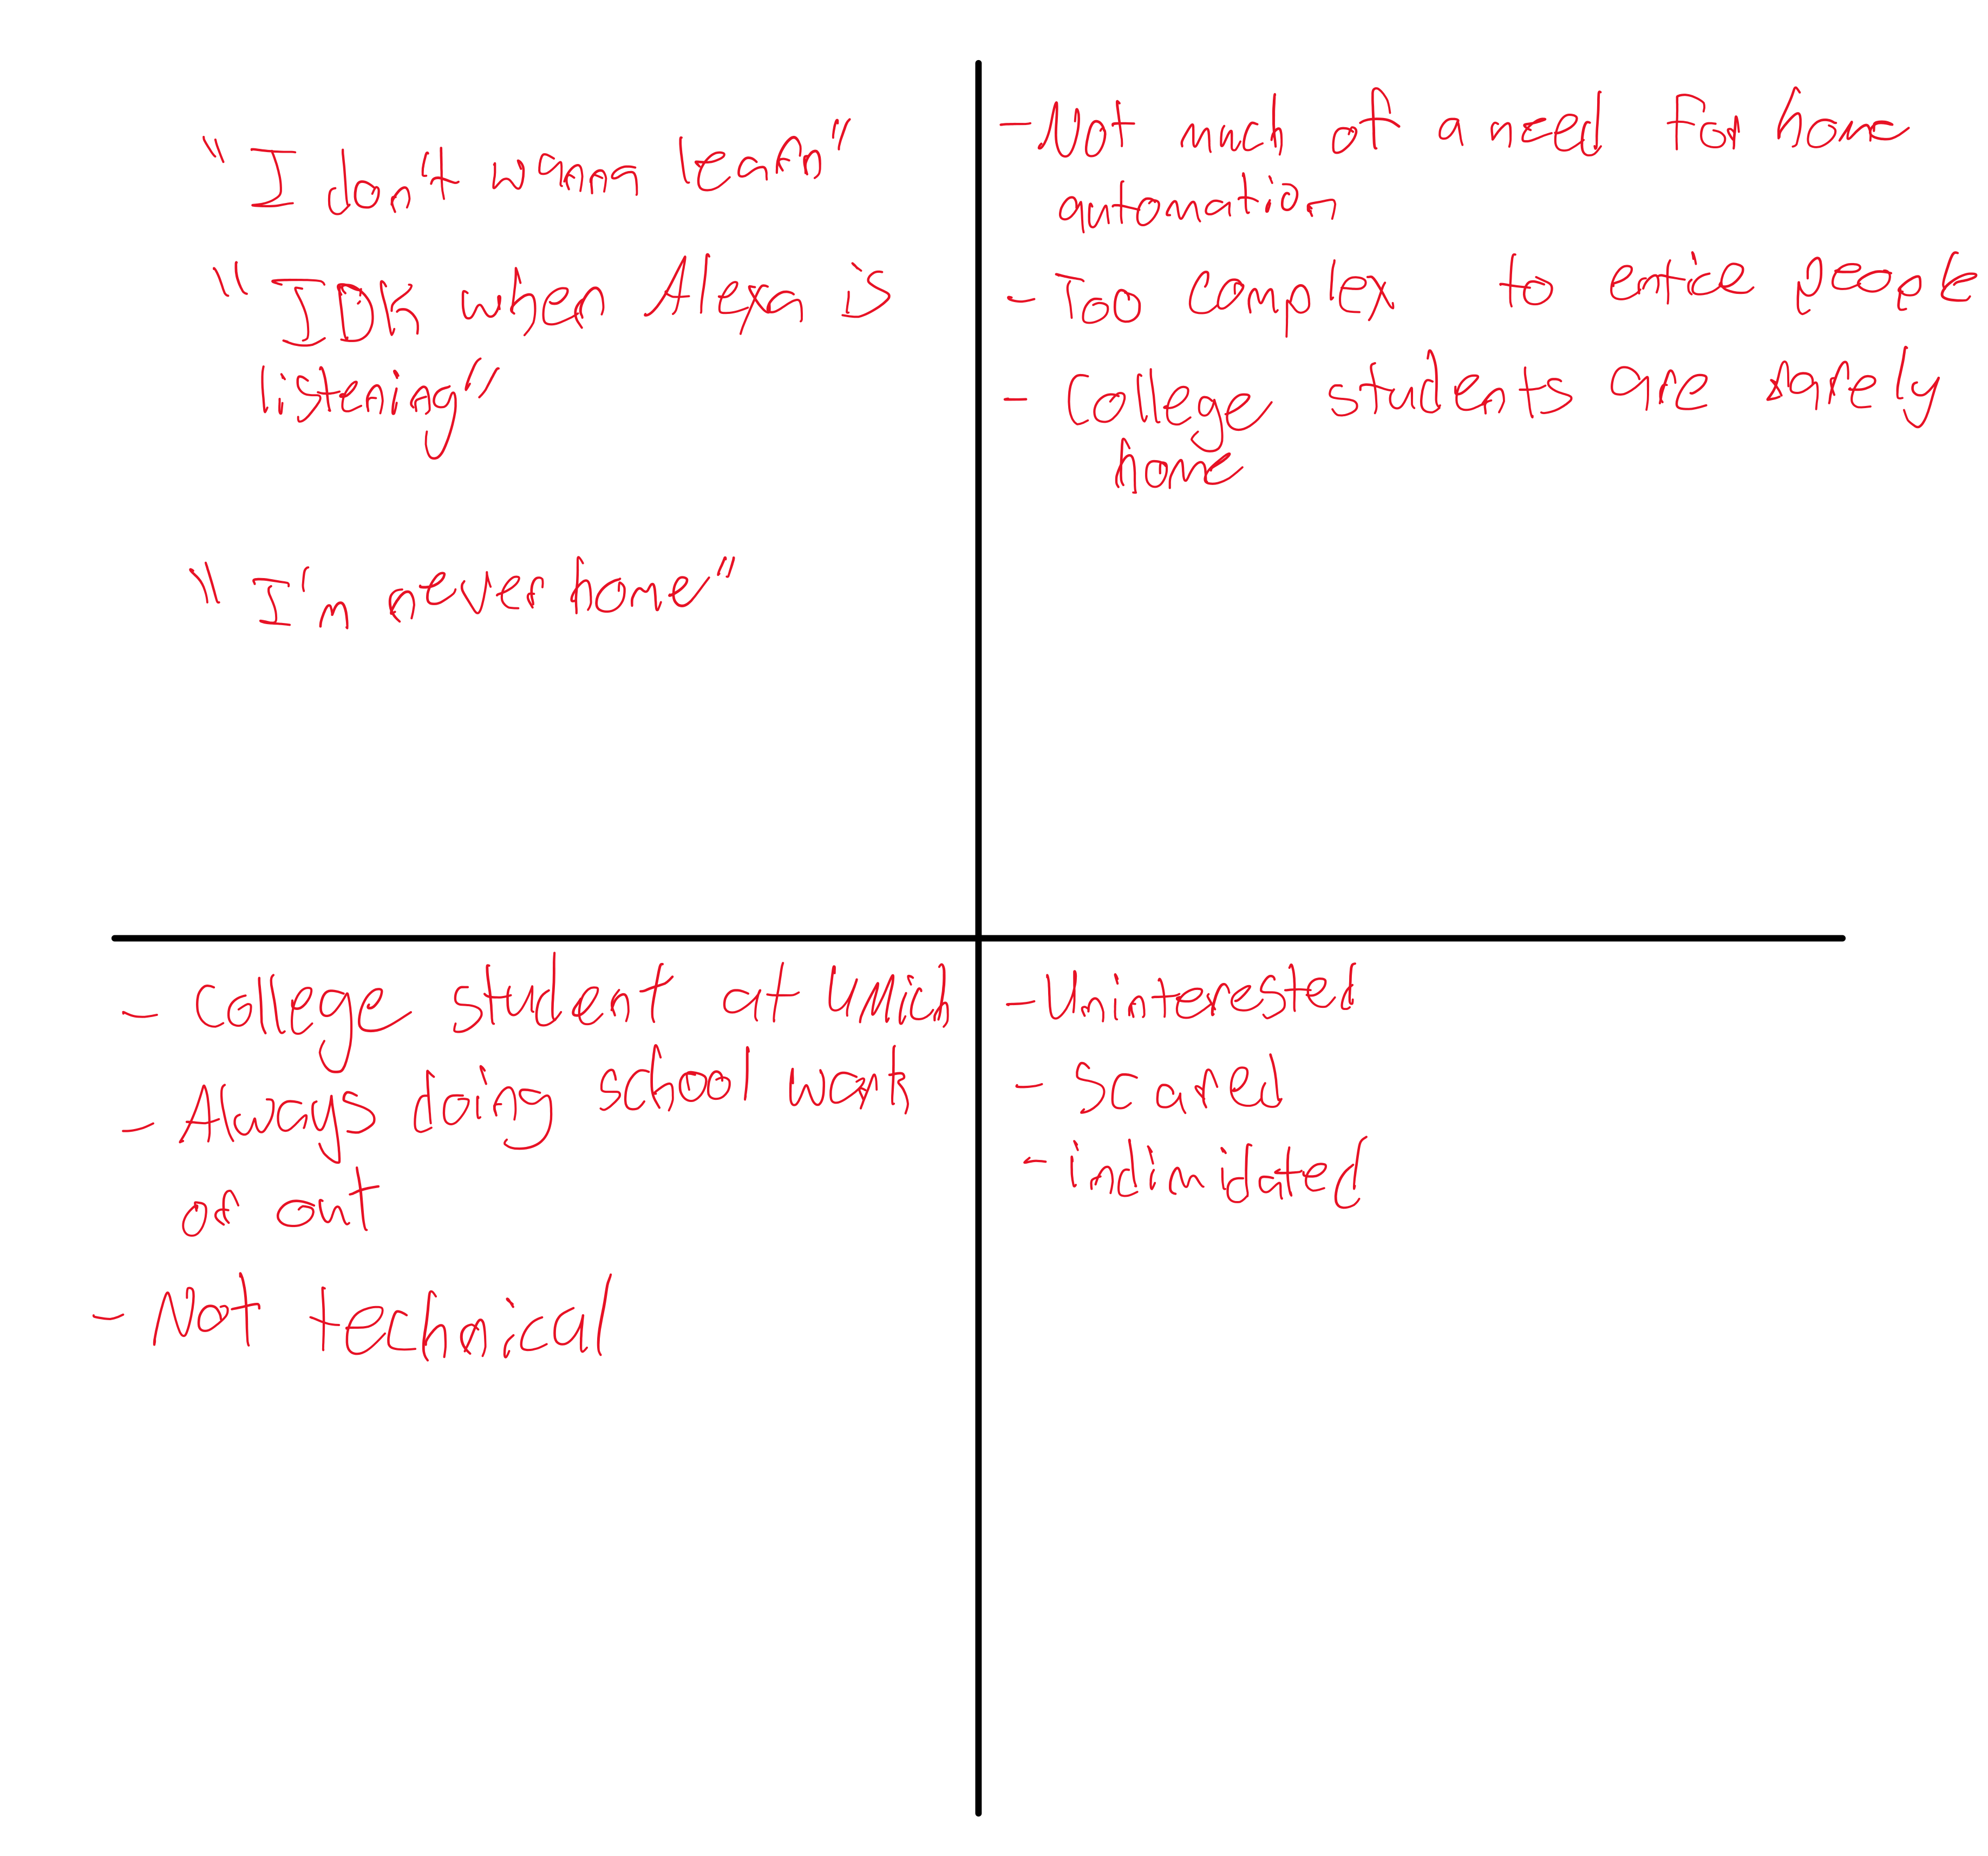 "I don't wanna learn"
"IDK when Alexa is
listening"
"I'm never home"
- Not much of a need for home
automation
- Too complex to entice people
- College students are rarely
home
- College student at UMich
- Always doing school work
or out
- Not technical
- Uninterested
- Scared
- indimidated